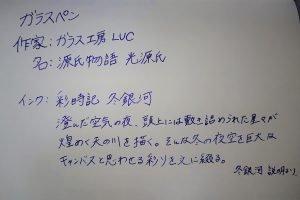 ガラスペン
作家：ガラス工房 LUC
名：源氏物語 光源氏
インク：彩時記 冬銀河
澄んだ空気の夜、頭上には敷き詰められた星々が
煌めく天の川を描く。そんな冬の夜空を巨大な
キャンバスと思わせる彩りを文に綴る。
冬銀河 説明より